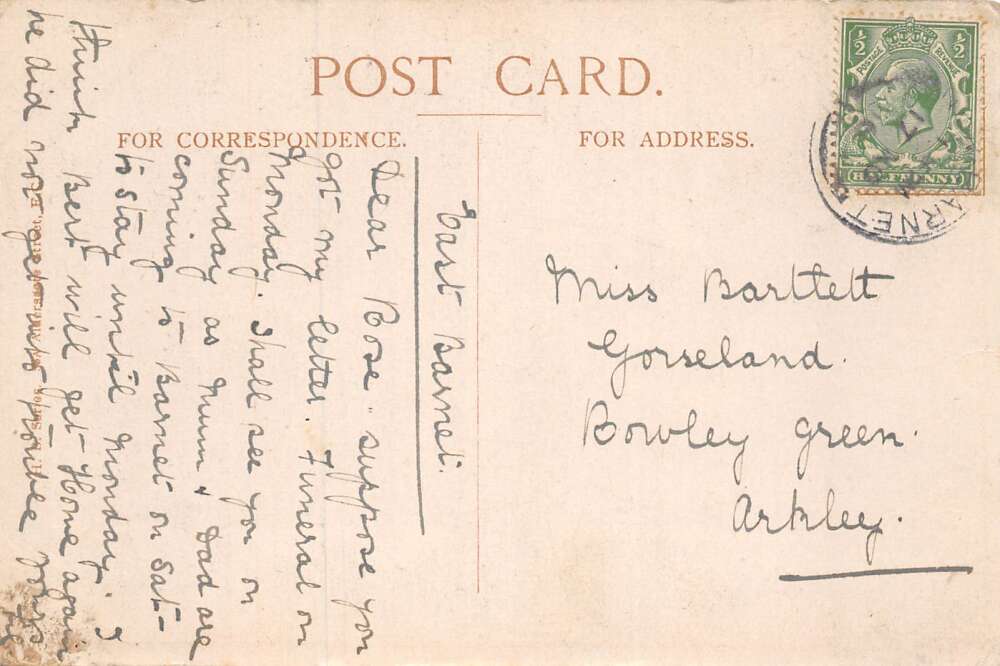 POST CARD.
FOR CORRESPONDENCE.
FOR ADDRESS.
East Barnet.
Dear Rose. suppose you
got my letter. Funeral on
Monday. Shall see you on
Sunday as Mum & Dad are
coming to Barnet on Sat-
to stay until Monday. I
think Bert will get Home again
he did not get into yours
Miss Bartlett
Gorseland.
Bowley Green.
Arkley.
½ ½
POSTAGE REVENUE
HALFPENNY
BARNET